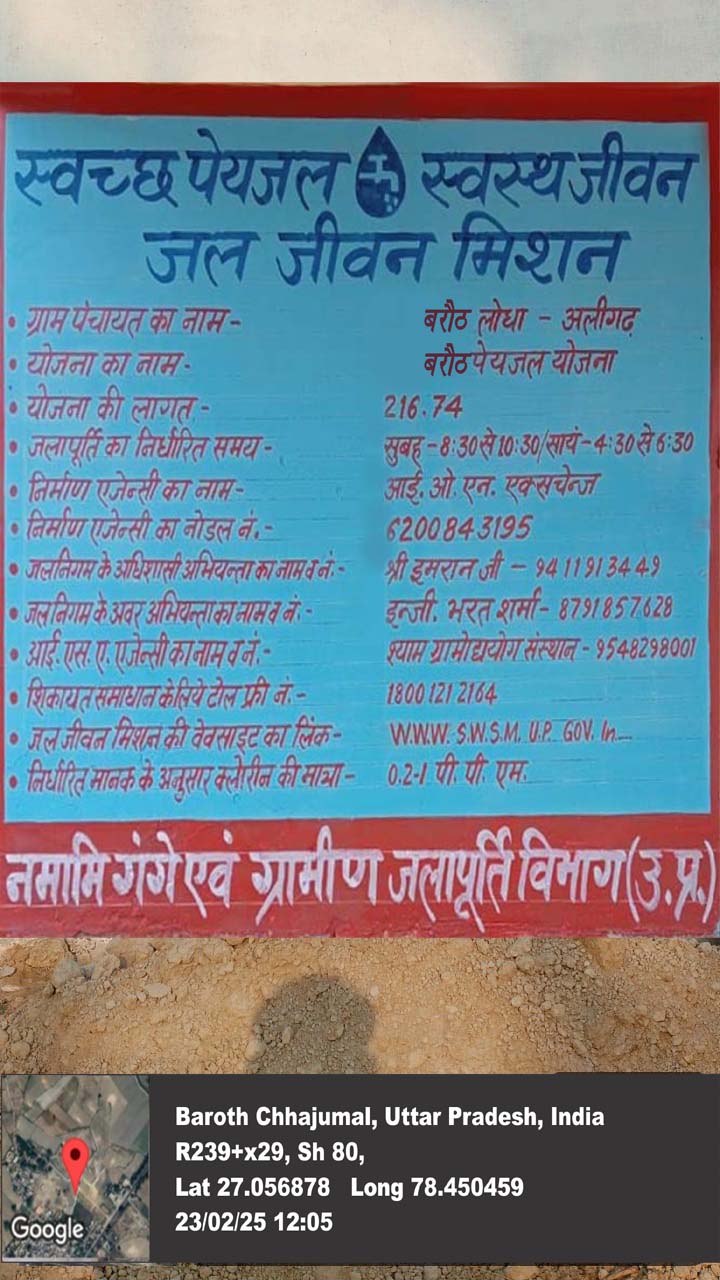 स्वच्छ पेयजल स्वस्थ जीवन
जल जीवन मिशन
• ग्राम पंचायत का नाम - बरौठ लोधा - अलीगढ़
• योजना का नाम - बरौठ पेयजल योजना
• योजना की लागत - 216.74
• जलापूर्ति का निर्धारित समय - सुबह - 8:30 से 10:30/सायं - 4:30 से 6:30
• निर्माण एजेन्सी का नाम - आई. ओ. एन. एक्सचेन्ज
• निर्माण एजेन्सी का नोडल नं. - 6200843195
• जलनिगम के अधिशासी अभियन्ता का नाम व नं. - श्री इमरान जी - 9411913449
• जलनिगम के अवर अभियन्ता का नाम व नं. - इन्जी. भरत शर्मा - 8791857628
• आई. एस. ए. एजेन्सी का नाम व नं. - श्याम ग्रामोद्ययोग संस्थान - 9548298001
• शिकायत समाधान के लिये टोल फ्री नं. - 1800 121 2164
• जल जीवन मिशन की वेवसाइट का लिंक - W.W.W. S.W.S.M. U.P. GOV. In
• निर्धारित मानक के अनुसार क्लोरीन की मात्रा - 0.2-1 पी. पी. एम.
नमामि गंगे एवं ग्रामीण जलापूर्ति विभाग (उ.प्र.)
Baroth Chhajumal, Uttar Pradesh, India
R239+x29, Sh 80,
Lat 27.056878 Long 78.450459
23/02/25 12:05
Google